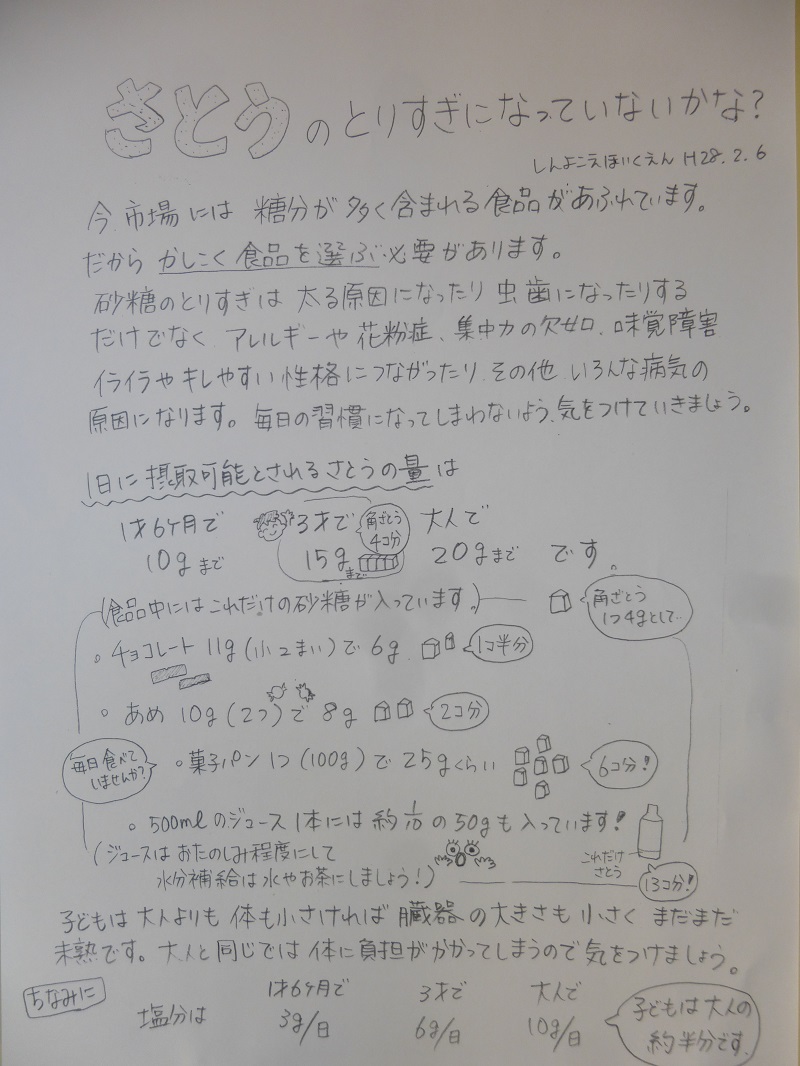 さとうのとりすぎになっていないかな?
しんよこえほいくえん H28.2.6
今、市場には 糖分が 多く含まれる食品があふれています。
だから かしこく 食品を選ぶ必要があります。
砂糖のとりすぎは 太る原因になったり 虫歯になったりする
だけでなく、アレルギーや花粉症、集中力の欠如、味覚障害
イライラやキレやすい性格につながったり、その他 いろんな病気の
原因になります。毎日の習慣になってしまわないよう、気をつけていきましょう。
1日に摂取可能とされるさとうの量は
1才6ヶ月で 3才で 大人で
角ざとう
4コ分
10gまで 15gまで 20gまで です。
(食品中にはこれだけの砂糖が入っています。)
角ざとう
1つ4gとして…
。チョコレート 11g(小2まい)で 6g 1コ半分
。あめ 10g(2つ)で 8g 2コ分
毎日食べて
いませんか?
。菓子パン 1つ(100g)で 25gくらい 6コ分!
。500mlのジュース 1本には 約1/10の50gも入っています!
(ジュースは おたのしみ程度にして
水分補給は水やお茶にしましょう!)
これだけ
さとう
13コ分!
子どもは 大人よりも 体も小さければ 臓器の大きさも 小さく まだまだ
未熟です。大人と同じでは 体に負担がかかってしまうので気をつけましょう。
ちなみに
1才6ヶ月で 3才で 大人で
塩分は 3g/日 6g/日 10g/日
子どもは大人の
約半分です。